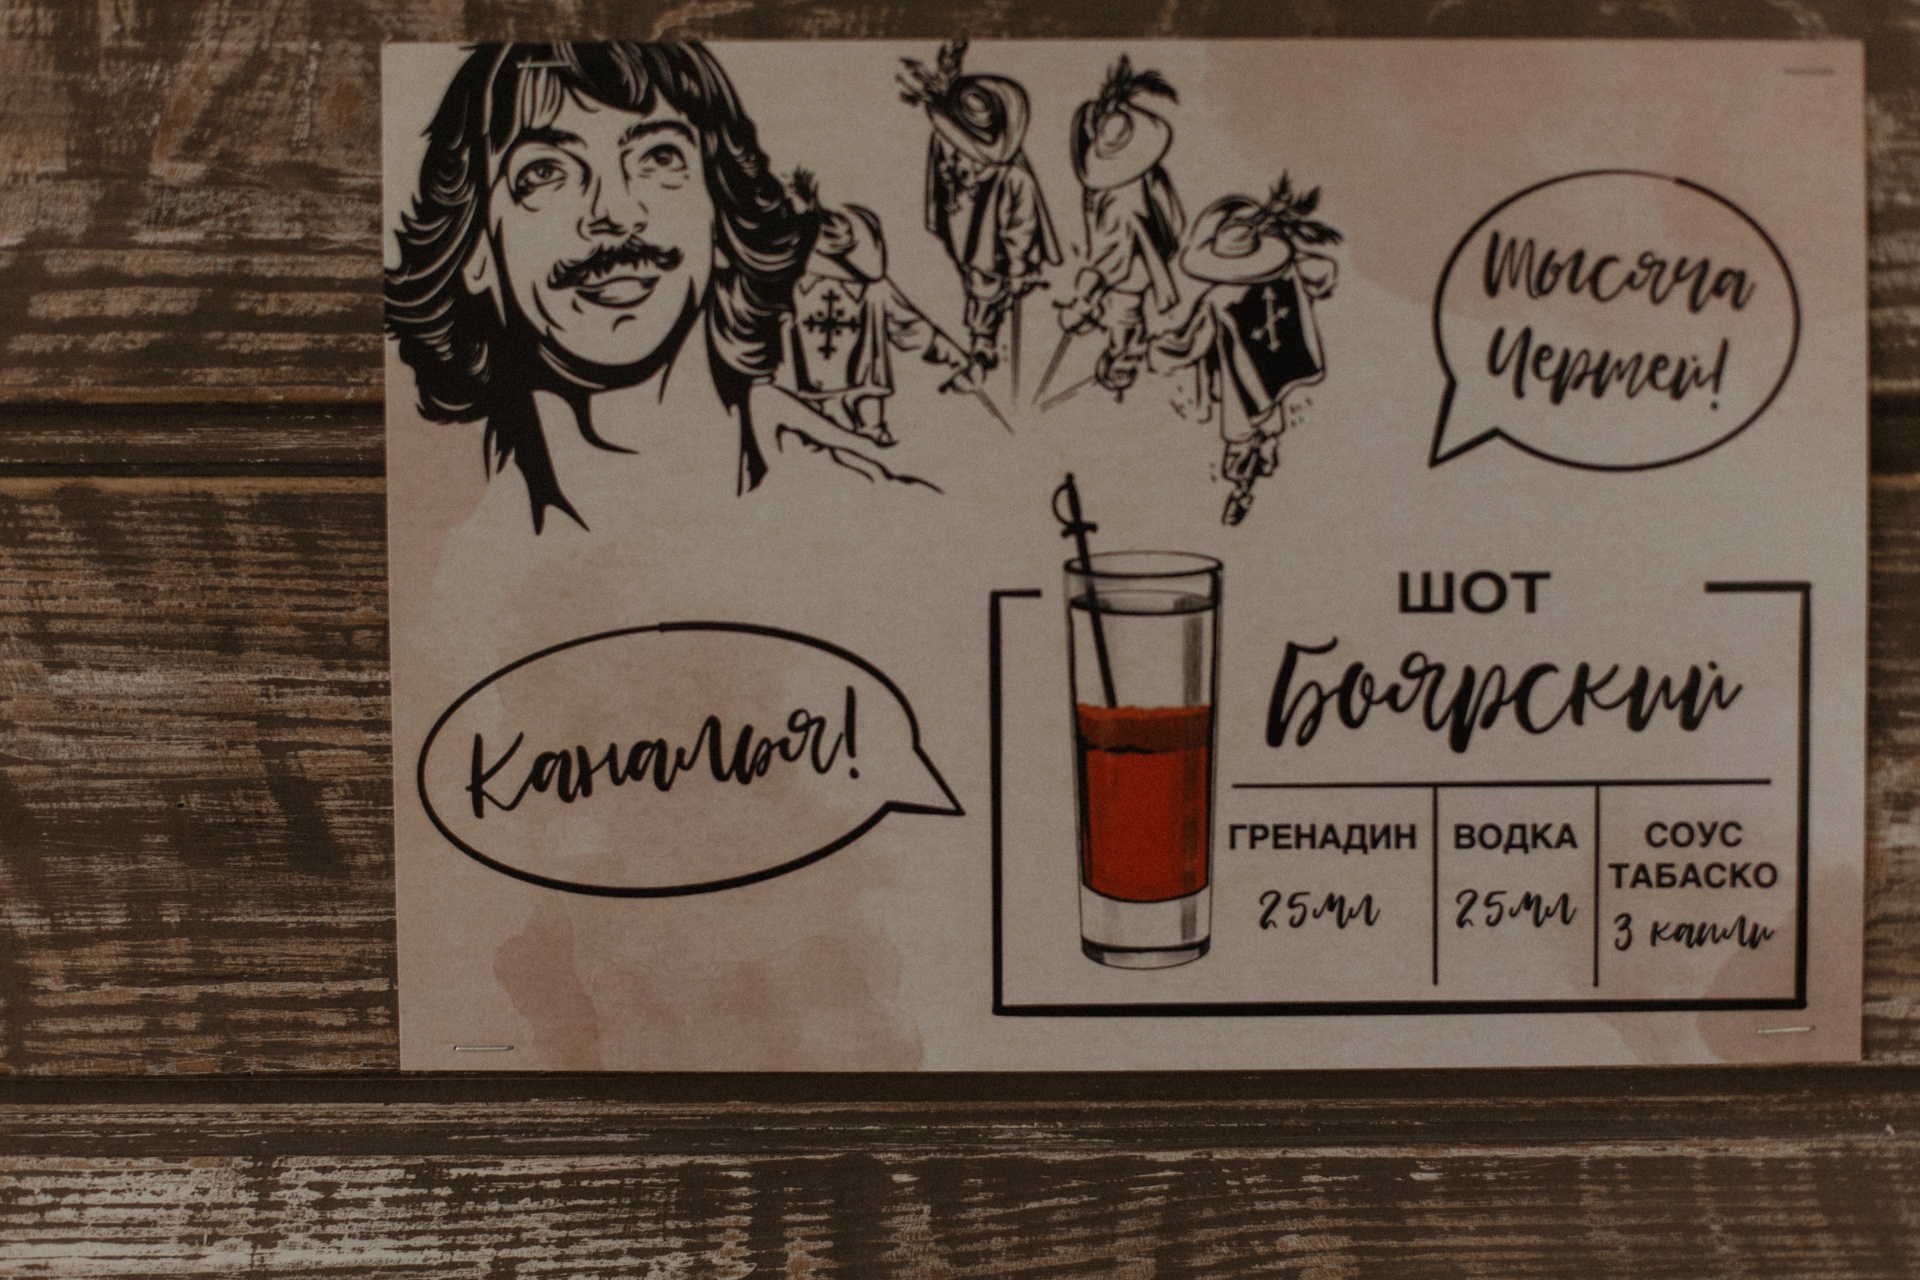 Тысяча
Чертей!
Каналья!
ШОТ
Боярский
ГРЕНАДИН
25мл
ВОДКА
25мл
СОУС
ТАБАСКО
3 капли